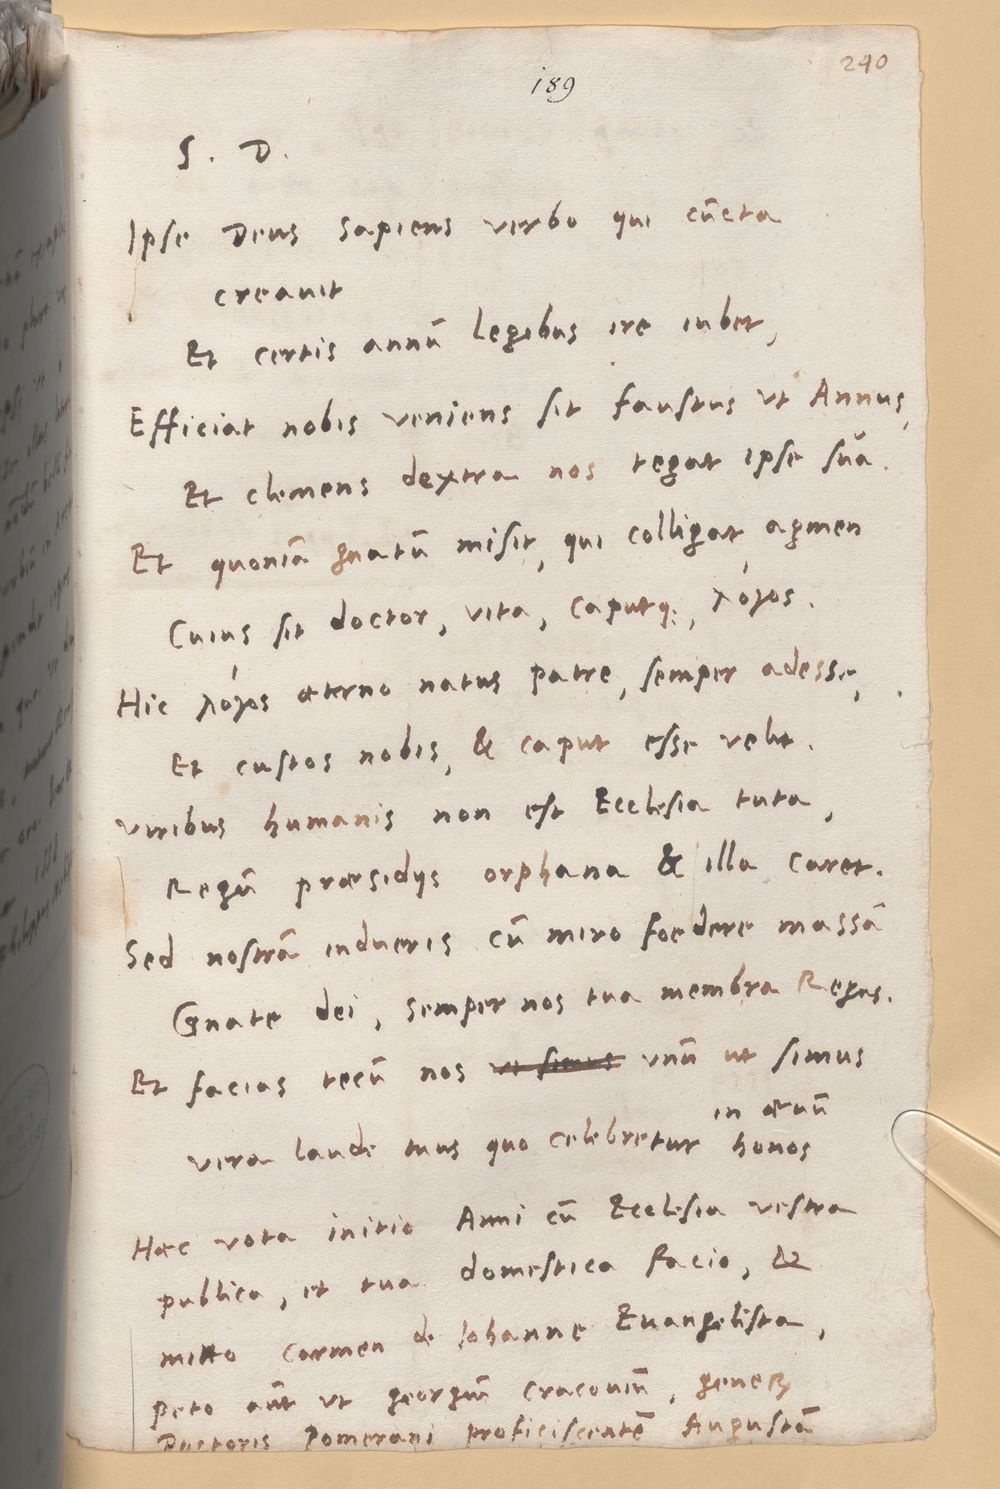 240
189
S. D.
Ipse Deus sapiens verbo qui cūcta
creauit
Et certis annū legibus ire iubet,
Efficiat nobis veniens sit faustus ut Annus,
Et clemens dextra nos tegat ipse suā.
Et quoniā gnatū misit, qui colligat agmen
Cuius sit doctor, vita, caputq;, λόγος.
Hic λόγος æterno natus patre, semper adesse,
Et custos nobis, & caput esse velit.
Viribus humanis non est Ecclesia tuta,
Regū præsidijs orphana & illa caret.
Sed nostrā indueris cū miro foedere massā
Gnate dei, semper nos tua membra Regas.
Et facias tecū nos ut simus vnū ut simus
in æuū
vera laude tuus quo celebretur honos
Haec vota initio Anni cū Ecclesia vestra
publica, et tua domestica facio, &
mitto carmen de Iohanne Euangelista,
Peto aūt ut georgiū Cracouiū, generū
Doctoris Pomerani proficiscentē Augustā